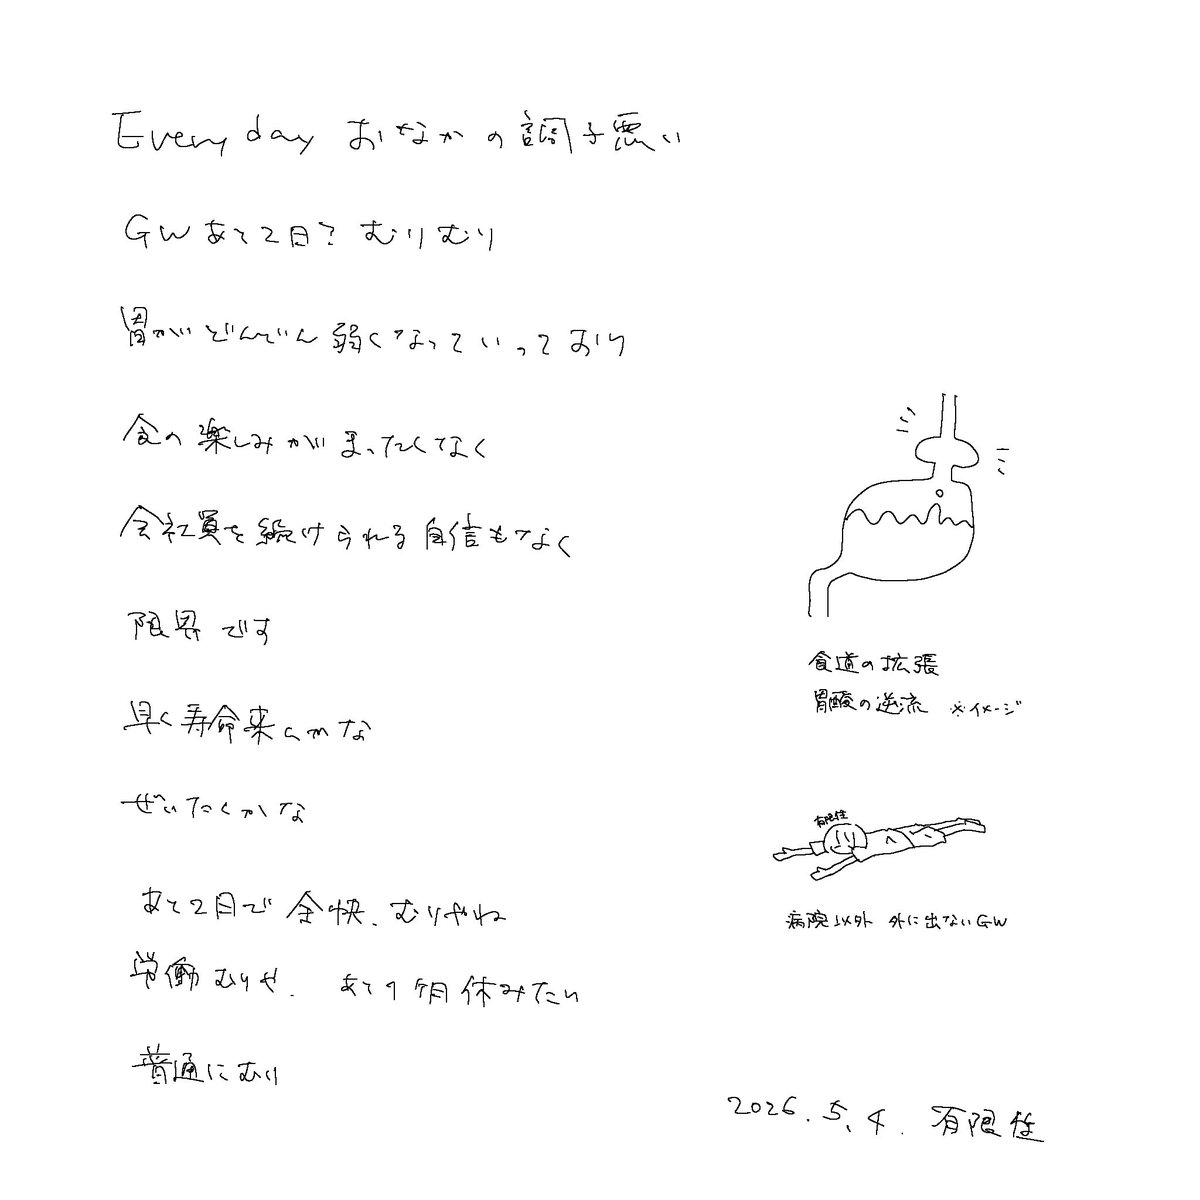 Everyday おなかの調子悪い
GWあと2日? むりむり
胃がどんどん弱くなっていっており
食の楽しみがまったくなく
会社員を続けられる自信もなく
限界です
早く寿命来んかな
ぜいたくかな
あと2日で全快、むりやね
労働むりや. あと1ヶ月休みたい
普通にむり
食道の拡張
胃酸の逆流 ※イメージ
有限性
病院以外 外に出ないGW
2026.5.4. 有限性